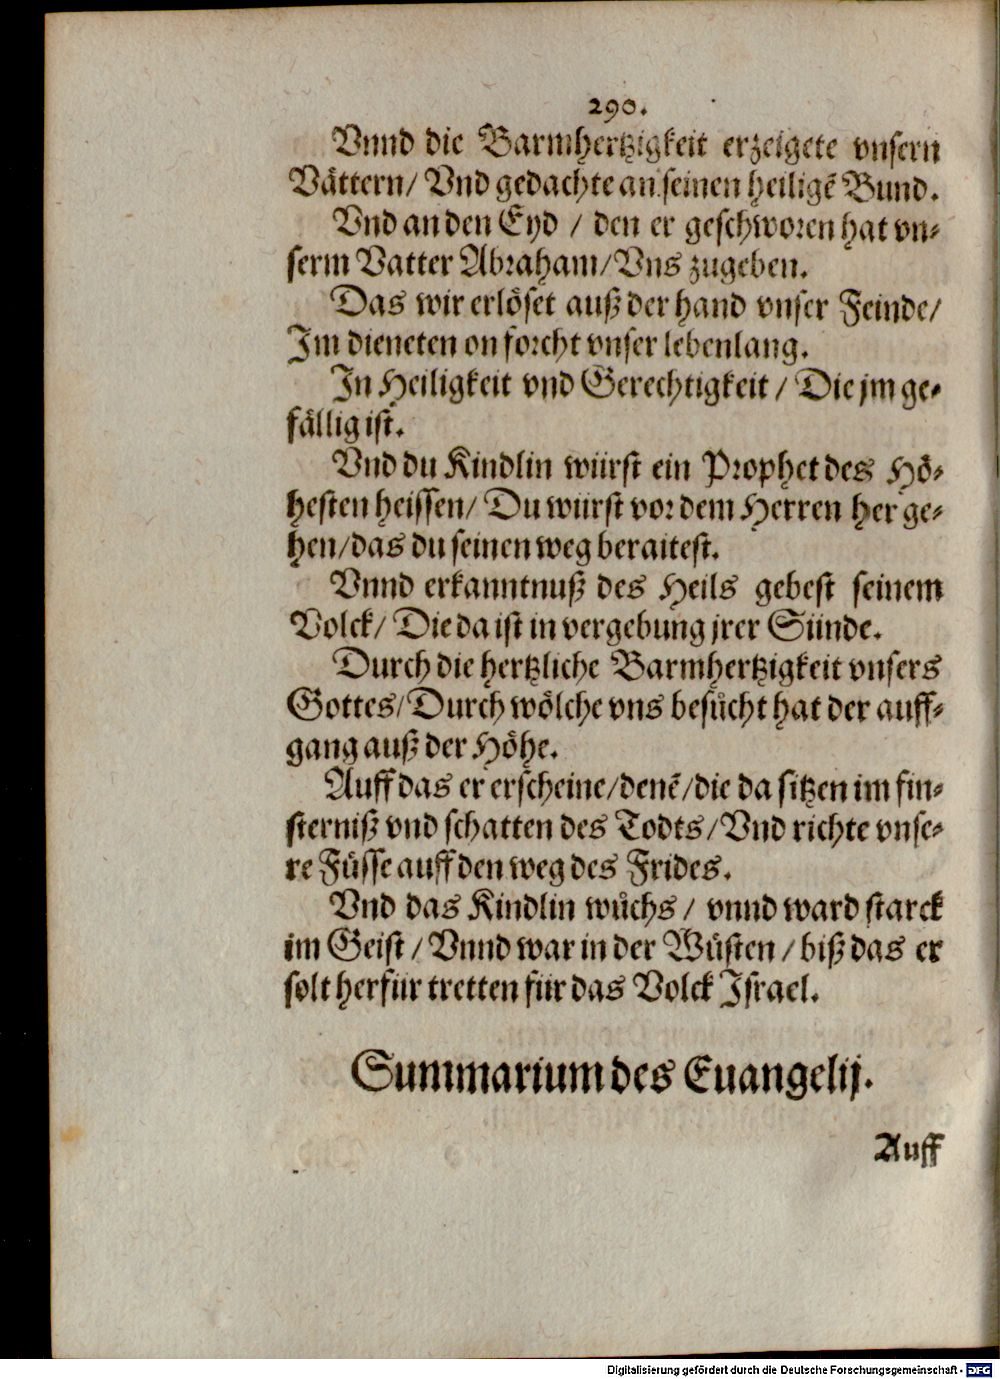 290.
Vnnd die Barmhertzigkeit erzeigete vnsern
Vättern/ Vnd gedachte an seinen heiligē Bund.
Vnd an den Eyd / den er geschworen hat vn-
serm Vatter Abraham/Vns zugeben.
Das wir erlöset auß der hand vnser Feinde/
Im dieneten on forcht vnser lebenlang.
In Heiligkeit vnd Gerechtigkeit / Die jm ge-
fällig ist.
Vnd du Kindlin würst ein Prophet des Hö-
hesten heissen/ Du würst vor dem Herren her ge-
hen/das du seinen weg beraitest.
Vnnd erkanntnuß des Heils gebest seinem
Volck/ Die da ist in vergebung jrer Sünde.
Durch die hertzliche Barmhertzigkeit vnsers
Gottes/Durch wölche vns besůcht hat der auff-
gang auß der Höhe.
Auff das er erscheine/denē/die da sitzen im fin-
sterniß vnd schatten des Todts/Vnd richte vnse-
re Füsse auff den weg des Frides.
Vnd das Kindlin wůchs / vnnd ward starck
im Geist / Vnnd war in der Wüsten / biß das er
solt herfür tretten für das Volck Israel.
Summarium des Euangelij.
Auff
Digitalisierung gefördert durch die Deutsche Forschungsgemeinschaft - DFG